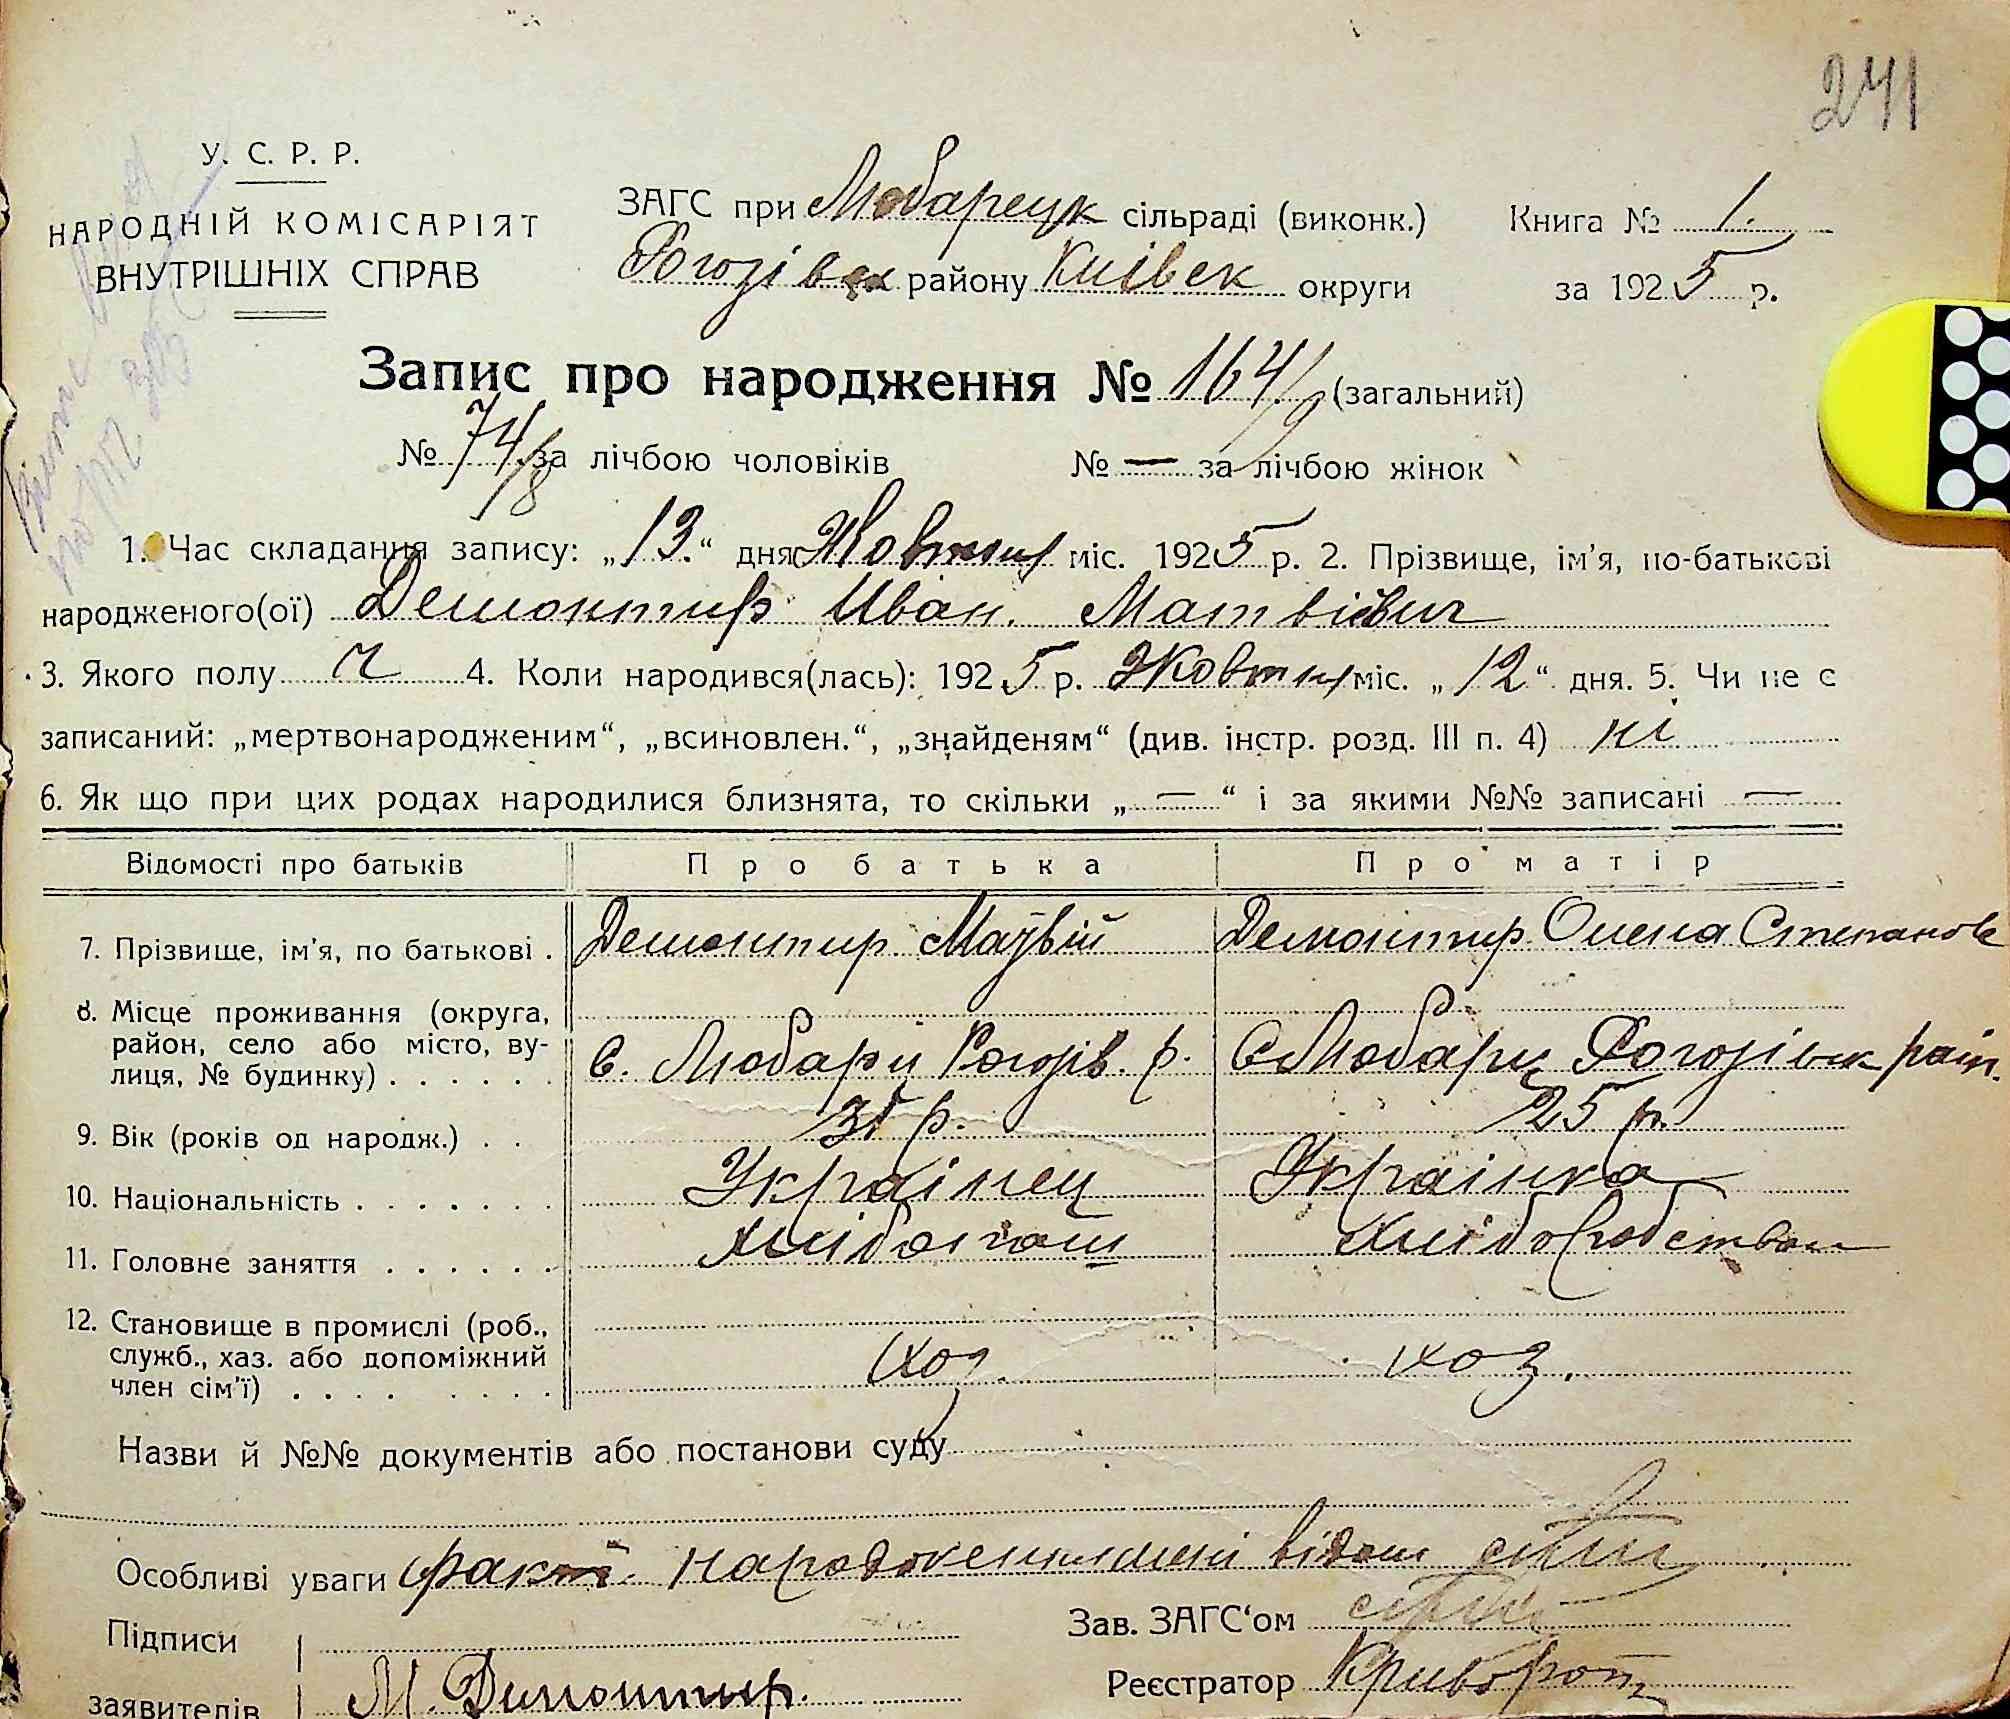 241
У. С. Р. Р.
НАРОДНІЙ КОМІСАРІЯТ
ВНУТРІШНІХ СПРАВ
ЗАГС при Любарецк сільраді (виконк.)
Рогозівск району Київск округи
Книга № 1.
за 1925 р.
Запис про народження № 164/9 (загальний)
№ 74/8 за лічбою чоловіків № — за лічбою жінок
1. Час складання запису: „13.“ дня Жовтня міс. 1925 р. 2. Прізвище, ім'я, по-батькові
народженого(ої) Демонтир Иван. Матвієвич
3. Якого полу ч 4. Коли народився(лась): 1925 р. Жовтня міс. „12“ дня. 5. Чи не є
записаний: „мертвонародженим“, „всиновлен.“, „знайденям“ (див. інстр. розд. III п. 4) ні
6. Як що при цих родах народилися близнята, то скільки „—“ і за якими №№ записані —
Відомості про батьків Про батька Про матір
7. Прізвище, ім'я, по батькові . Демонтир Матвій Демонтир Олена Степанов
8. Місце проживання (округа,
район, село або місто, ву-
лиця, № будинку) . . . . . . с. Любарці Рогозів. р. с Любарц Рогозівск район.
9. Вік (років од народж.) . . р. 25 р.
10. Національність . . . . . . . Українец Українка
11. Головне заняття . . . . . . Хлібопаш Хліборобством
12. Становище в промислі (роб.,
служб., хаз. або допоміжний
член сім'ї) . . . . . . . . хоз. хоз.
Назви й №№ документів або постанови суду
Особливі уваги факт. народження відом
Підписи
заявителів М. Димонтир.
Зав. ЗАГС'ом
Реєстратор Криворот